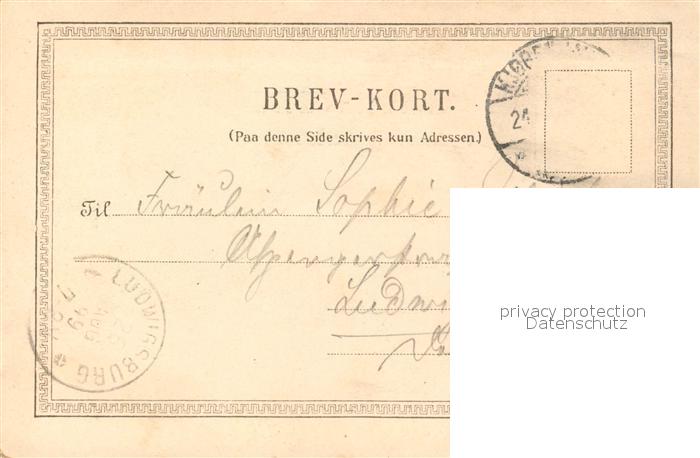 BREV-KORT.
(Paa denne Side skrives kun Adressen.)
Til Fräulein Sophie
Ludwi
LUDWIGSBURG
26
AUG
99
24
privacy protection
Datenschutz